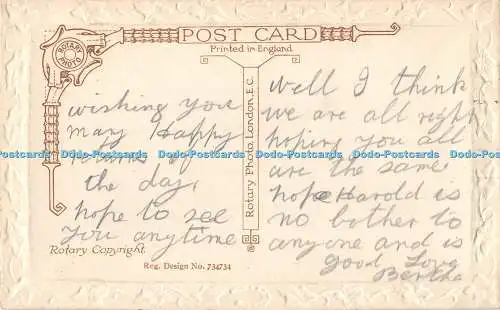 POST CARD
Printed in England
ROTARY PHOTO
wishing you
many Happy
returns of
the day,
hope to see
you anytime
Rotary Copyright.
Reg. Design No. 734734
Rotary Photo, London, E.C.
well I think
we are all right
hoping you all
are the same
hope Harold is
no bother to
anyone and is
good Love
Bertha
Dodo-Postcards Dodo-Postcards Dodo-Postcards Dodo-Postcards